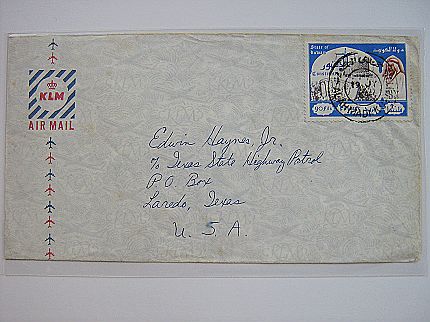 KLM
AIR MAIL
State of Kuwait
دولة الكويت
Edwin Haynes, Jr.
℅ Texas State Highway Patrol
P.O. Box
Laredo, Texas
U. S. A.